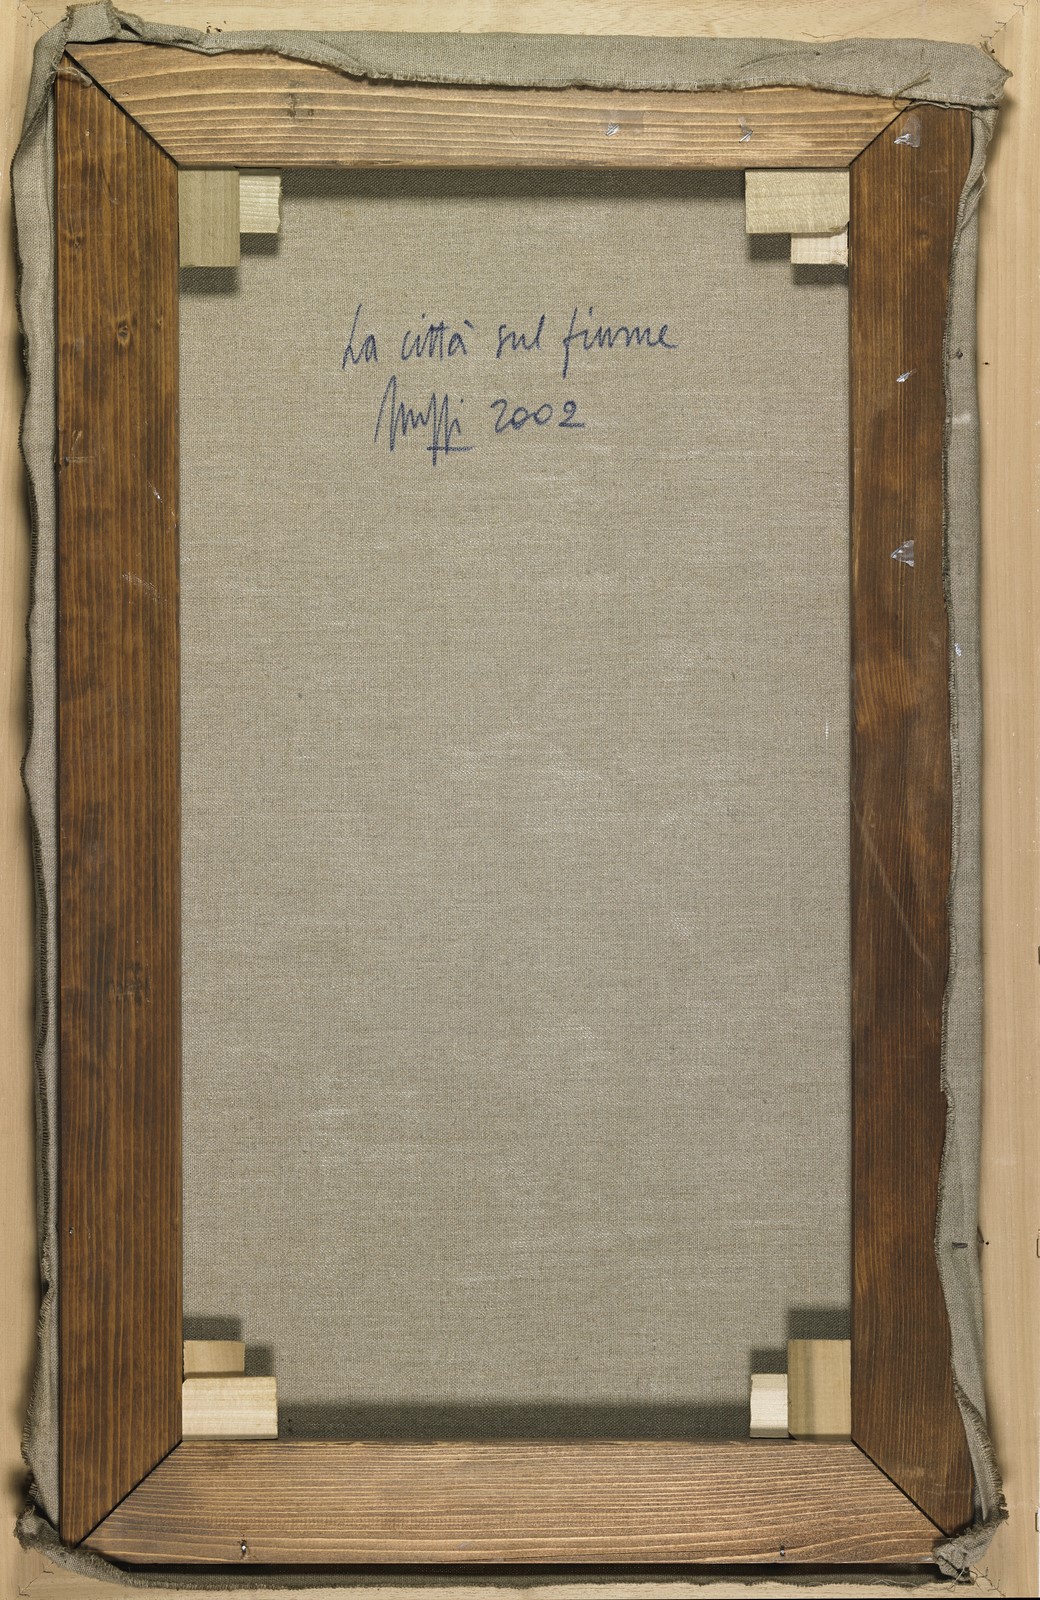 La città sul fiume
2002